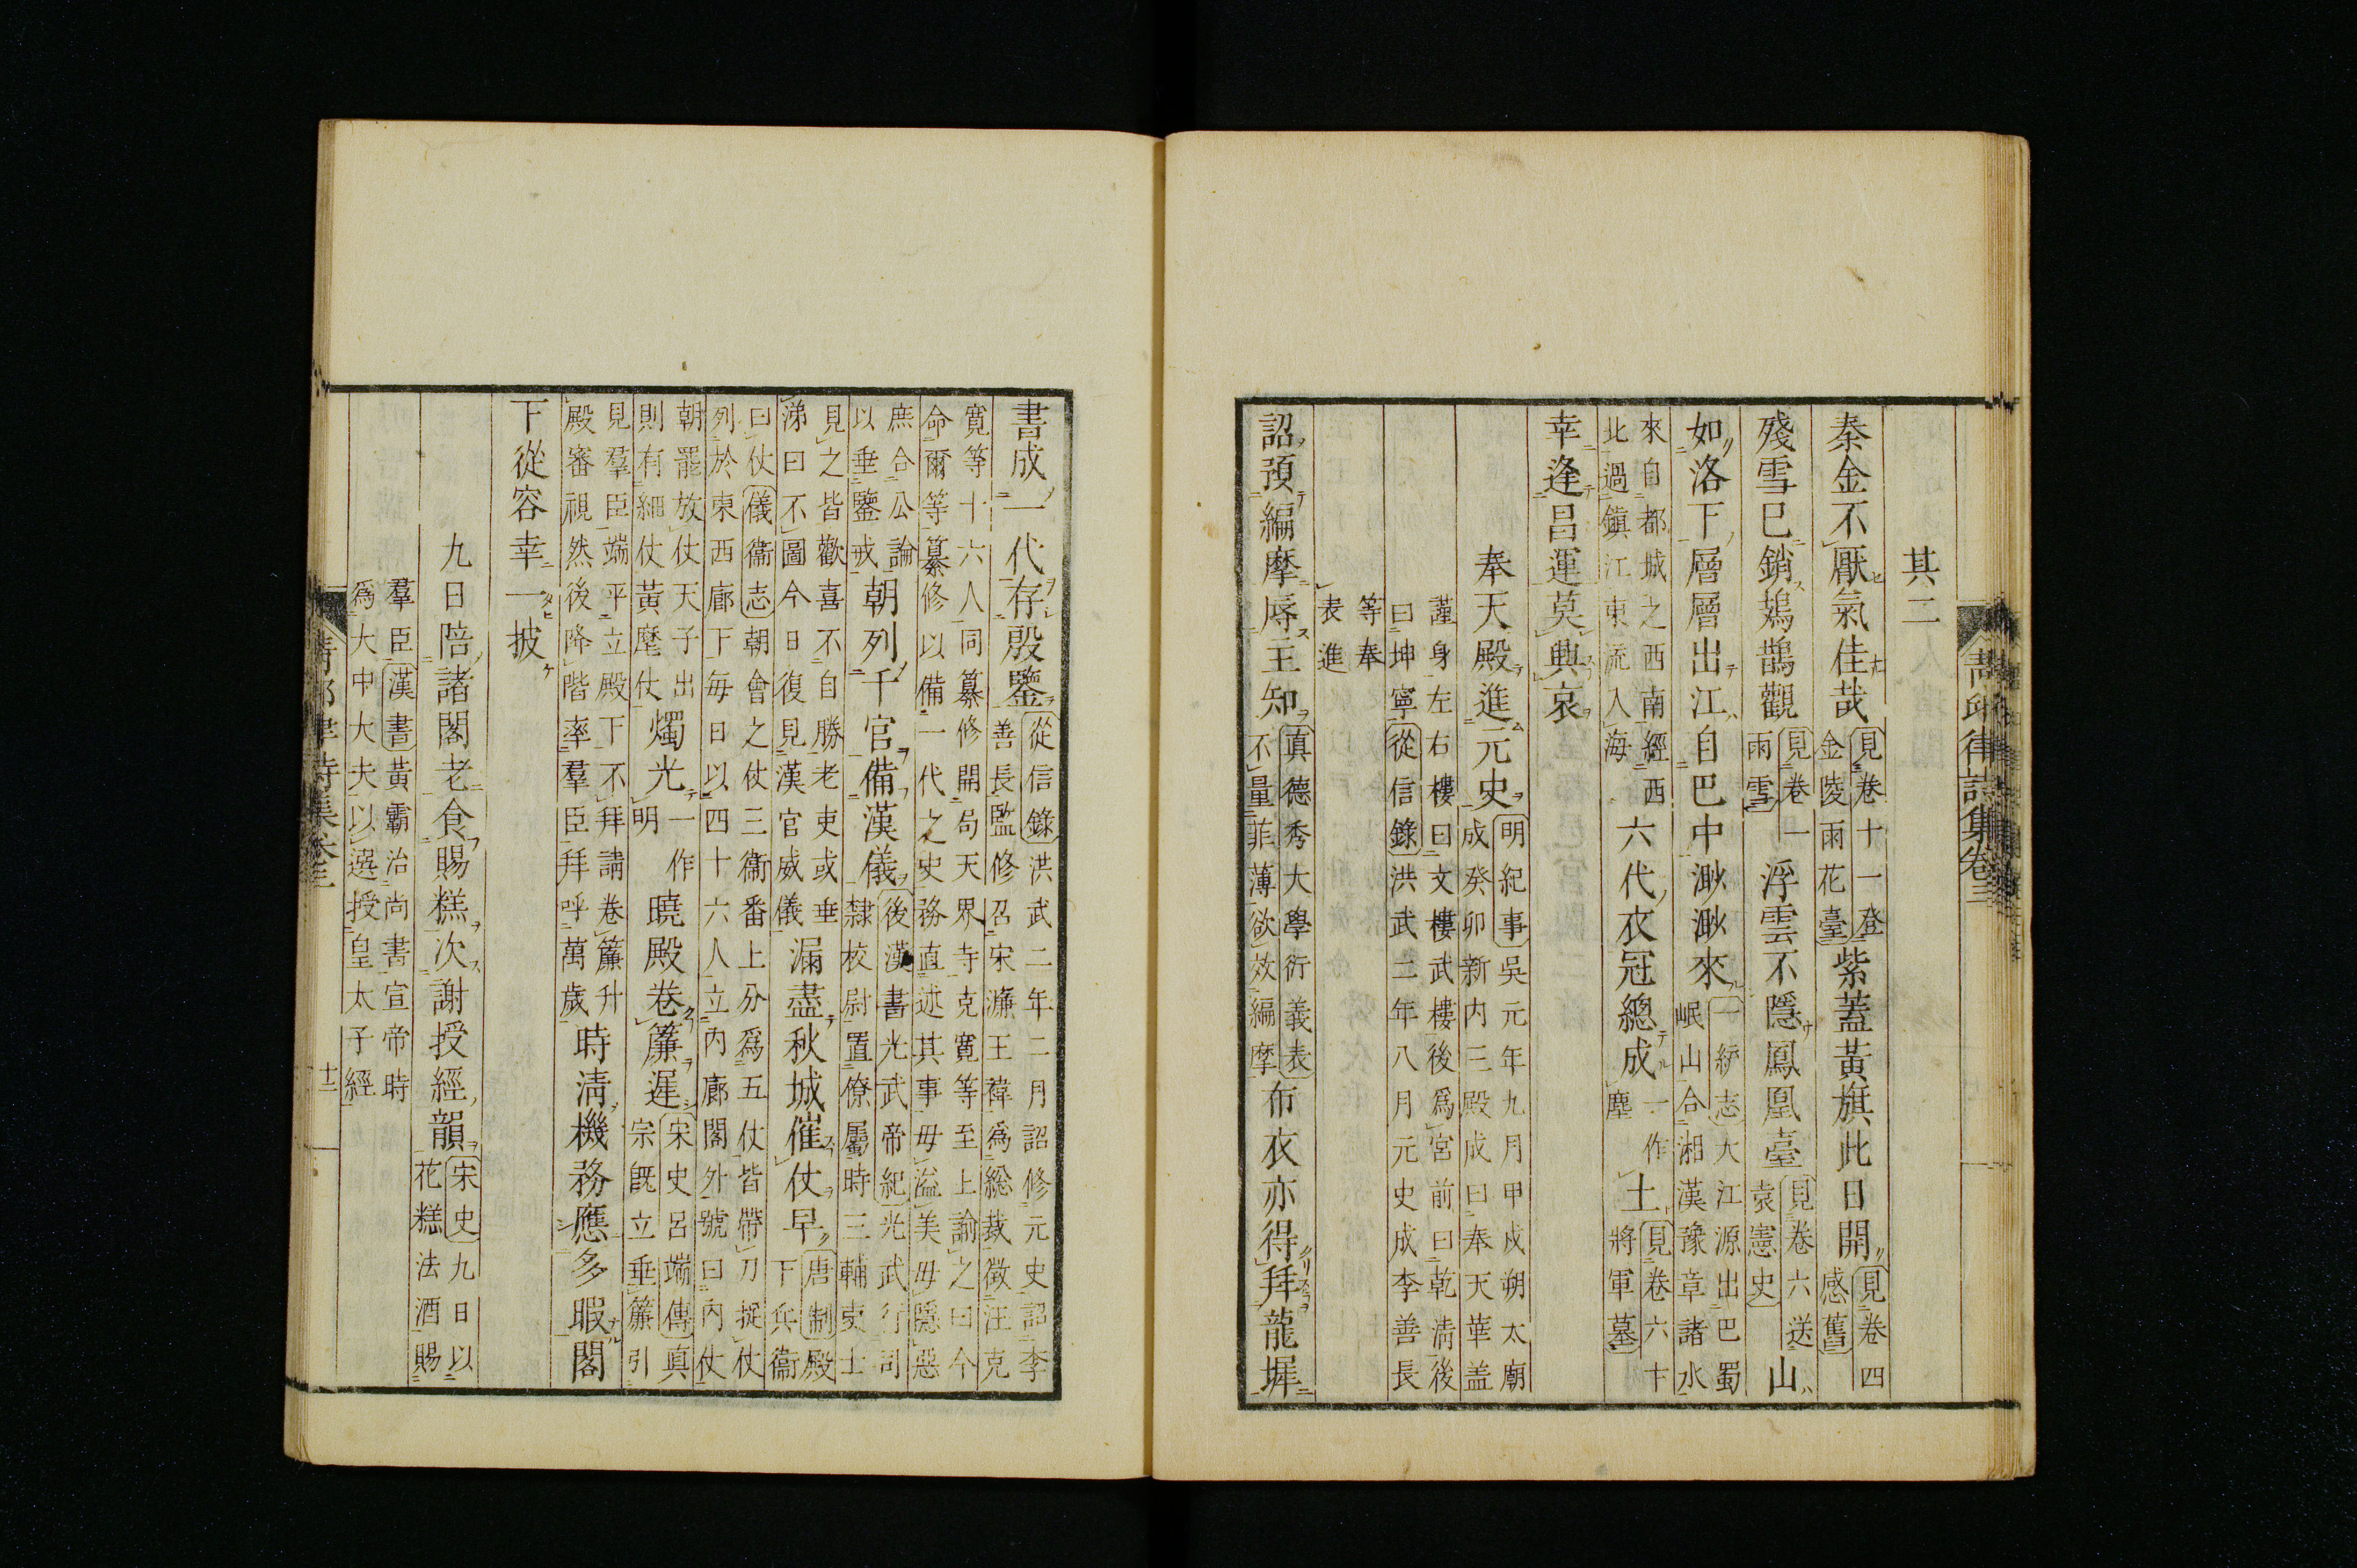 其二
秦金不厭氣佳哉
見卷十一登
金陵雨花臺
紫蓋黃旗此日開
見卷四
感舊
殘雪已銷鳷鵲觀
見卷一
雨雪
浮雲不隱鳳凰臺
見卷六送
袁憲史
山
如洛下層層出江自巴中渺渺來
一統志大江源出巴蜀
岷山合湘漢豫章諸水
來自都城之西南經西
北過鎮江東流入海
六代衣冠總成
一作
塵
土
見卷六卞
將軍墓
幸逢昌運莫興哀
奉天殿進元史
明紀事吳元年九月甲戌朔太廟
成癸卯新内三殿成曰奉天華盖
謹身左右樓曰文樓武樓後爲宮前曰乾淸後
曰坤寧從信錄洪武二年八月元史成李善長
等奉
表進
詔預編摩辱主知
真德秀大學衍義表
不量菲薄欲效編摩
布衣亦得拜龍墀
書成一代存殷鑒
從信錄洪武二年二月詔修元史詔李
善長監修召宋濂王褘爲総裁徵汪克
寬等十六人同纂修開局天界寺克寬等至上諭之曰今
命爾等纂修以備一代之史務直述其事毋溢美毋隱惡
庶合公論
以垂鑒戒
朝列千官備漢儀
後漢書光武帝紀光武行司
隸校尉置僚屬時三輔吏士
見之皆歡喜不自勝老吏或垂
涕曰不圖今日復見漢官威儀
漏盡秋城催仗早
唐制殿
下兵衞
曰仗儀衞志朝會之仗三衞番上分爲五仗皆帶刀捉仗
列於東西廊下毎日以四十六人立内廊閣外號曰内仗
朝罷放仗天子出
則有細仗黃麾仗
燭光
一作
明
曉殿卷簾遲
宋史呂端傳真
宗既立垂簾引
見羣臣端平立殿下不拜請卷簾升
殿審視然後降階率羣臣拜呼萬歲
時淸機務應多暇閣
下從容幸一披
九日陪諸閣老食賜糕次謝授經韻
宋史九日以
花糕法酒賜
羣臣漢書黃霸治尚書宣帝時
爲大中大夫以選授皇太子經
十二